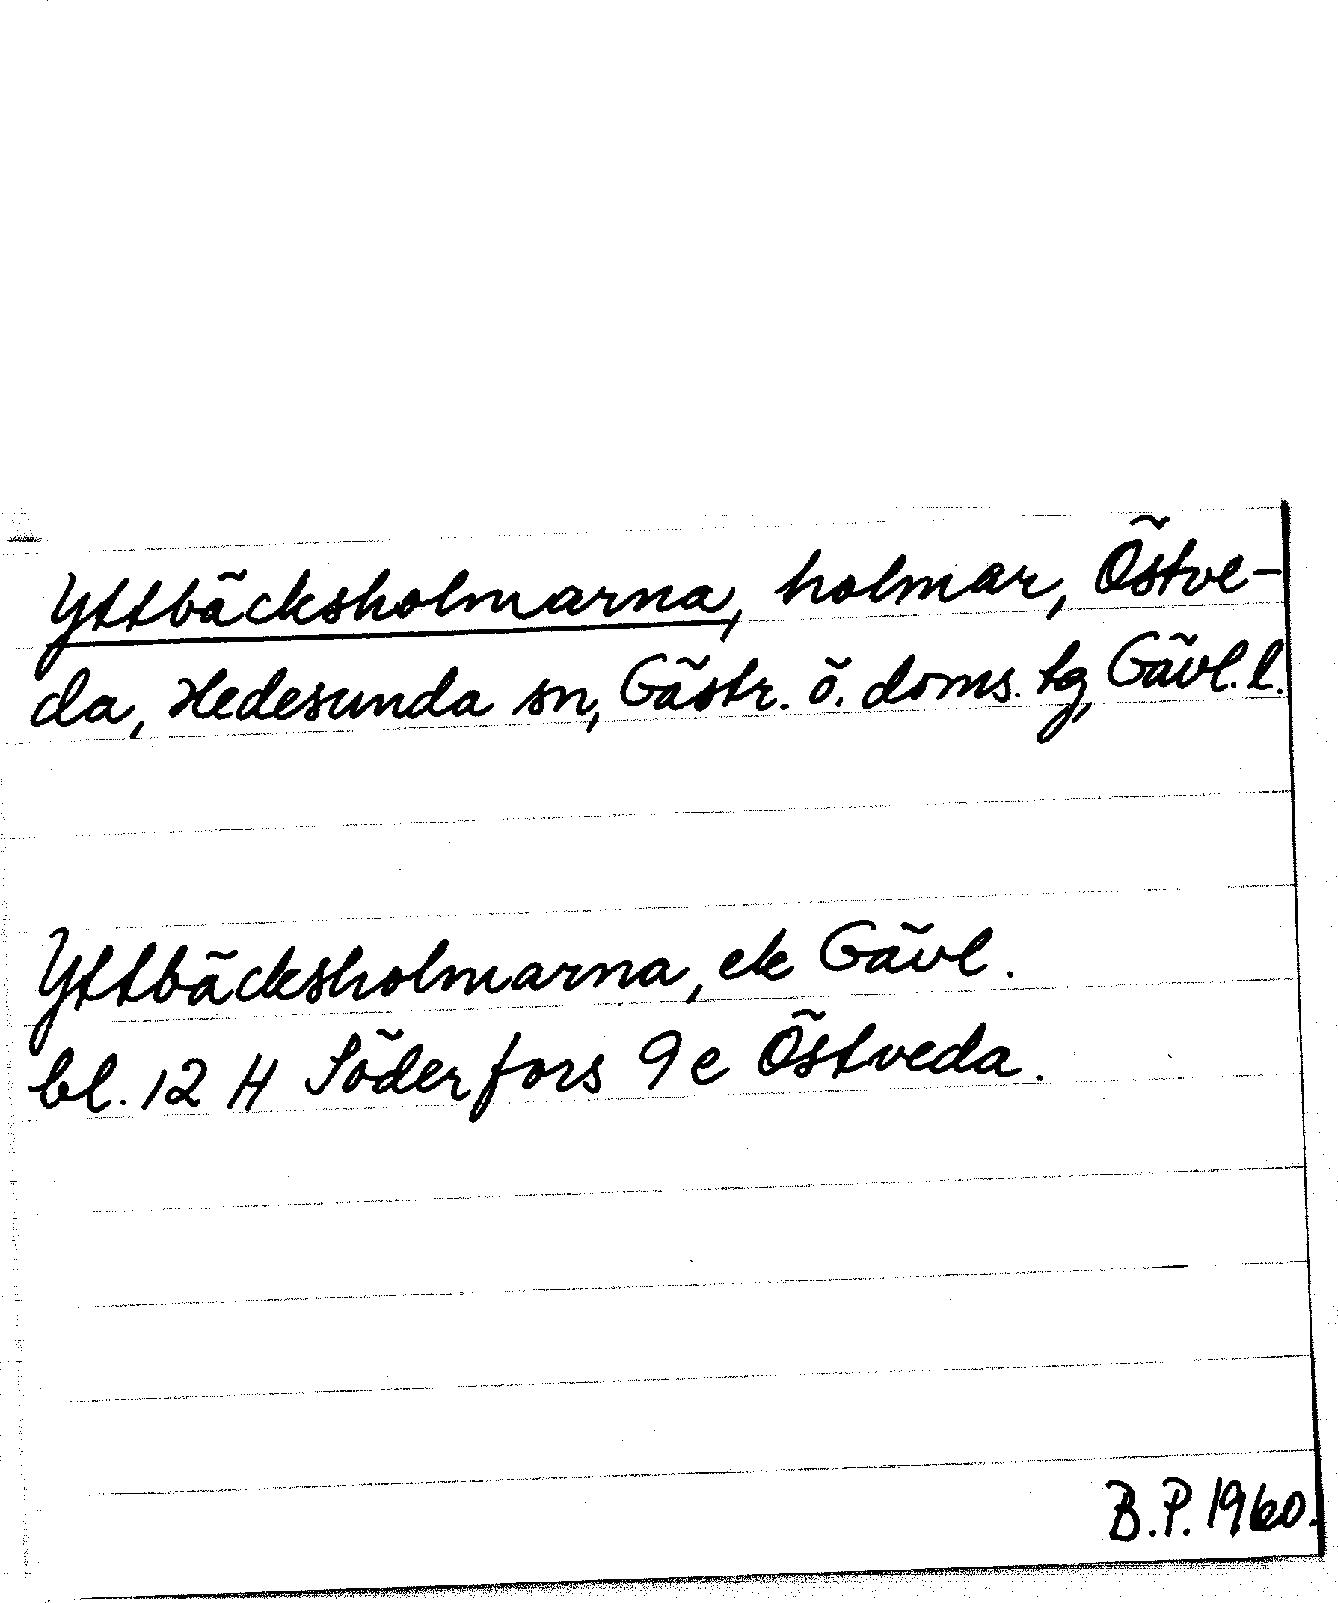 Yttbäcksholmarna, holmar, Östve-
da, Hedesunda sn, Gästr. ö. doms. tg, Gävl. l.
Yttbäcksholmarna, ek Gävl.
bl. 12 H Söderfors 9 e Östveda.
B.P. 1960.